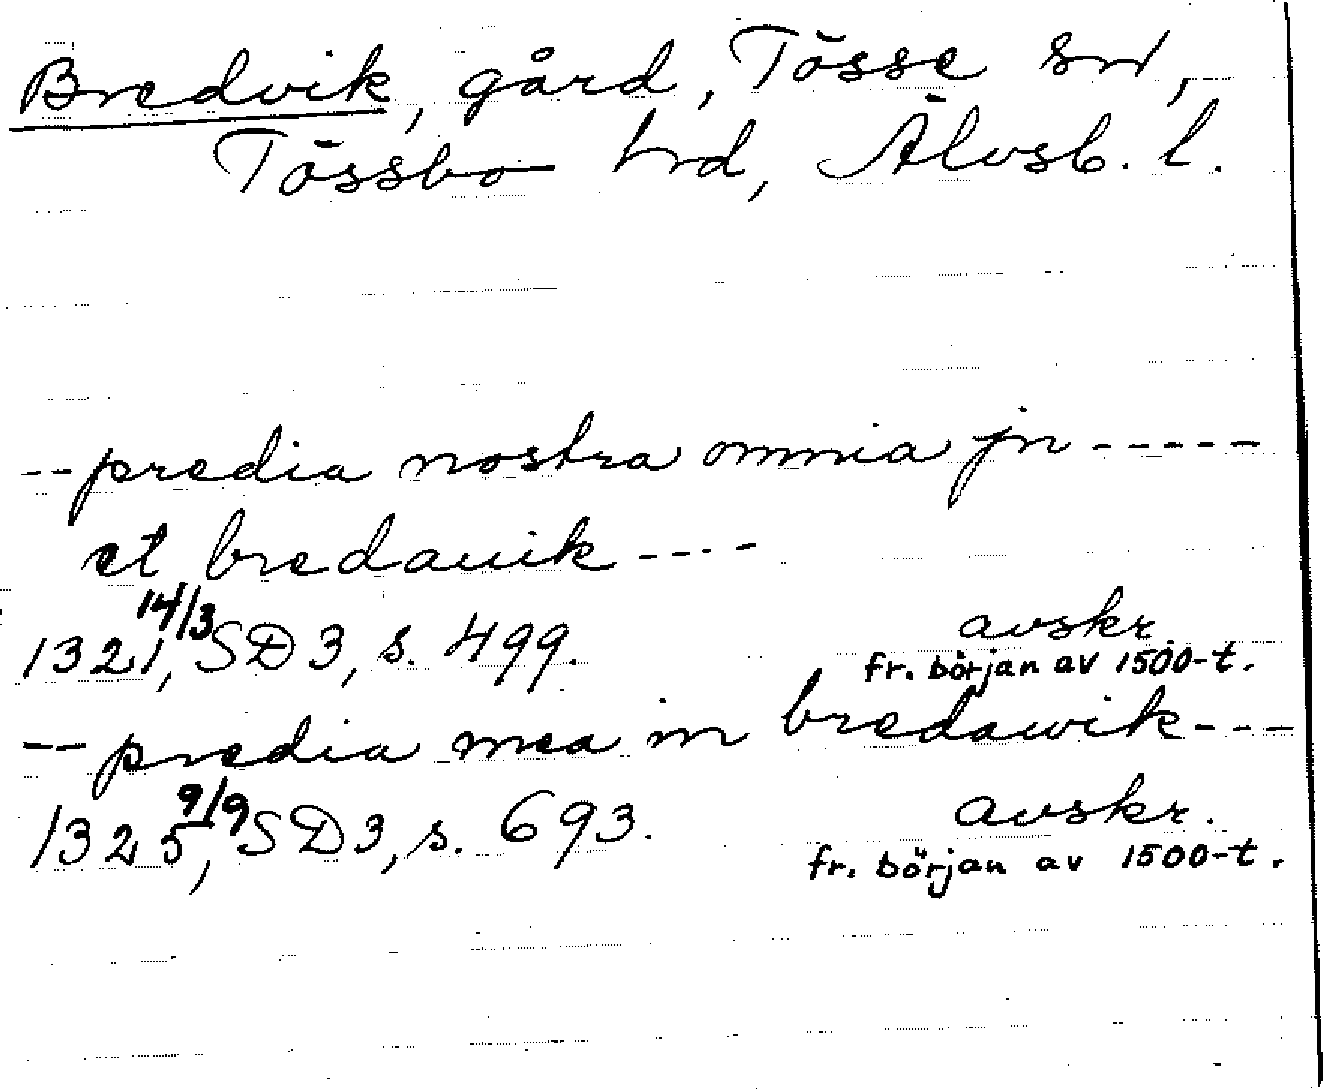 Bredvik, gård, Tösse sn,
Tössbo hrd, Älvsb. l.
-- predia nostra omnia jn -----
et bredauik ----
1321 14/3, SD 3, s. 499. avskr.
fr. början av 1500-t.
-- predia mea in bredawik ---
1325 9/9, SD 3, s. 693. avskr.
fr. början av 1500-t.